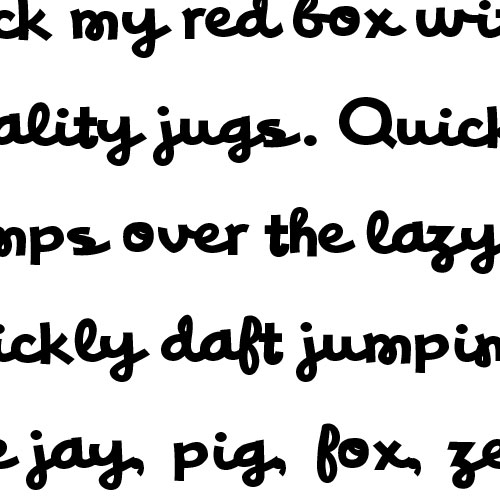 ck my red box wit
ality jugs. Quick
mps over the lazy
ickly daft jumpin
e jay, pig, fox, ze